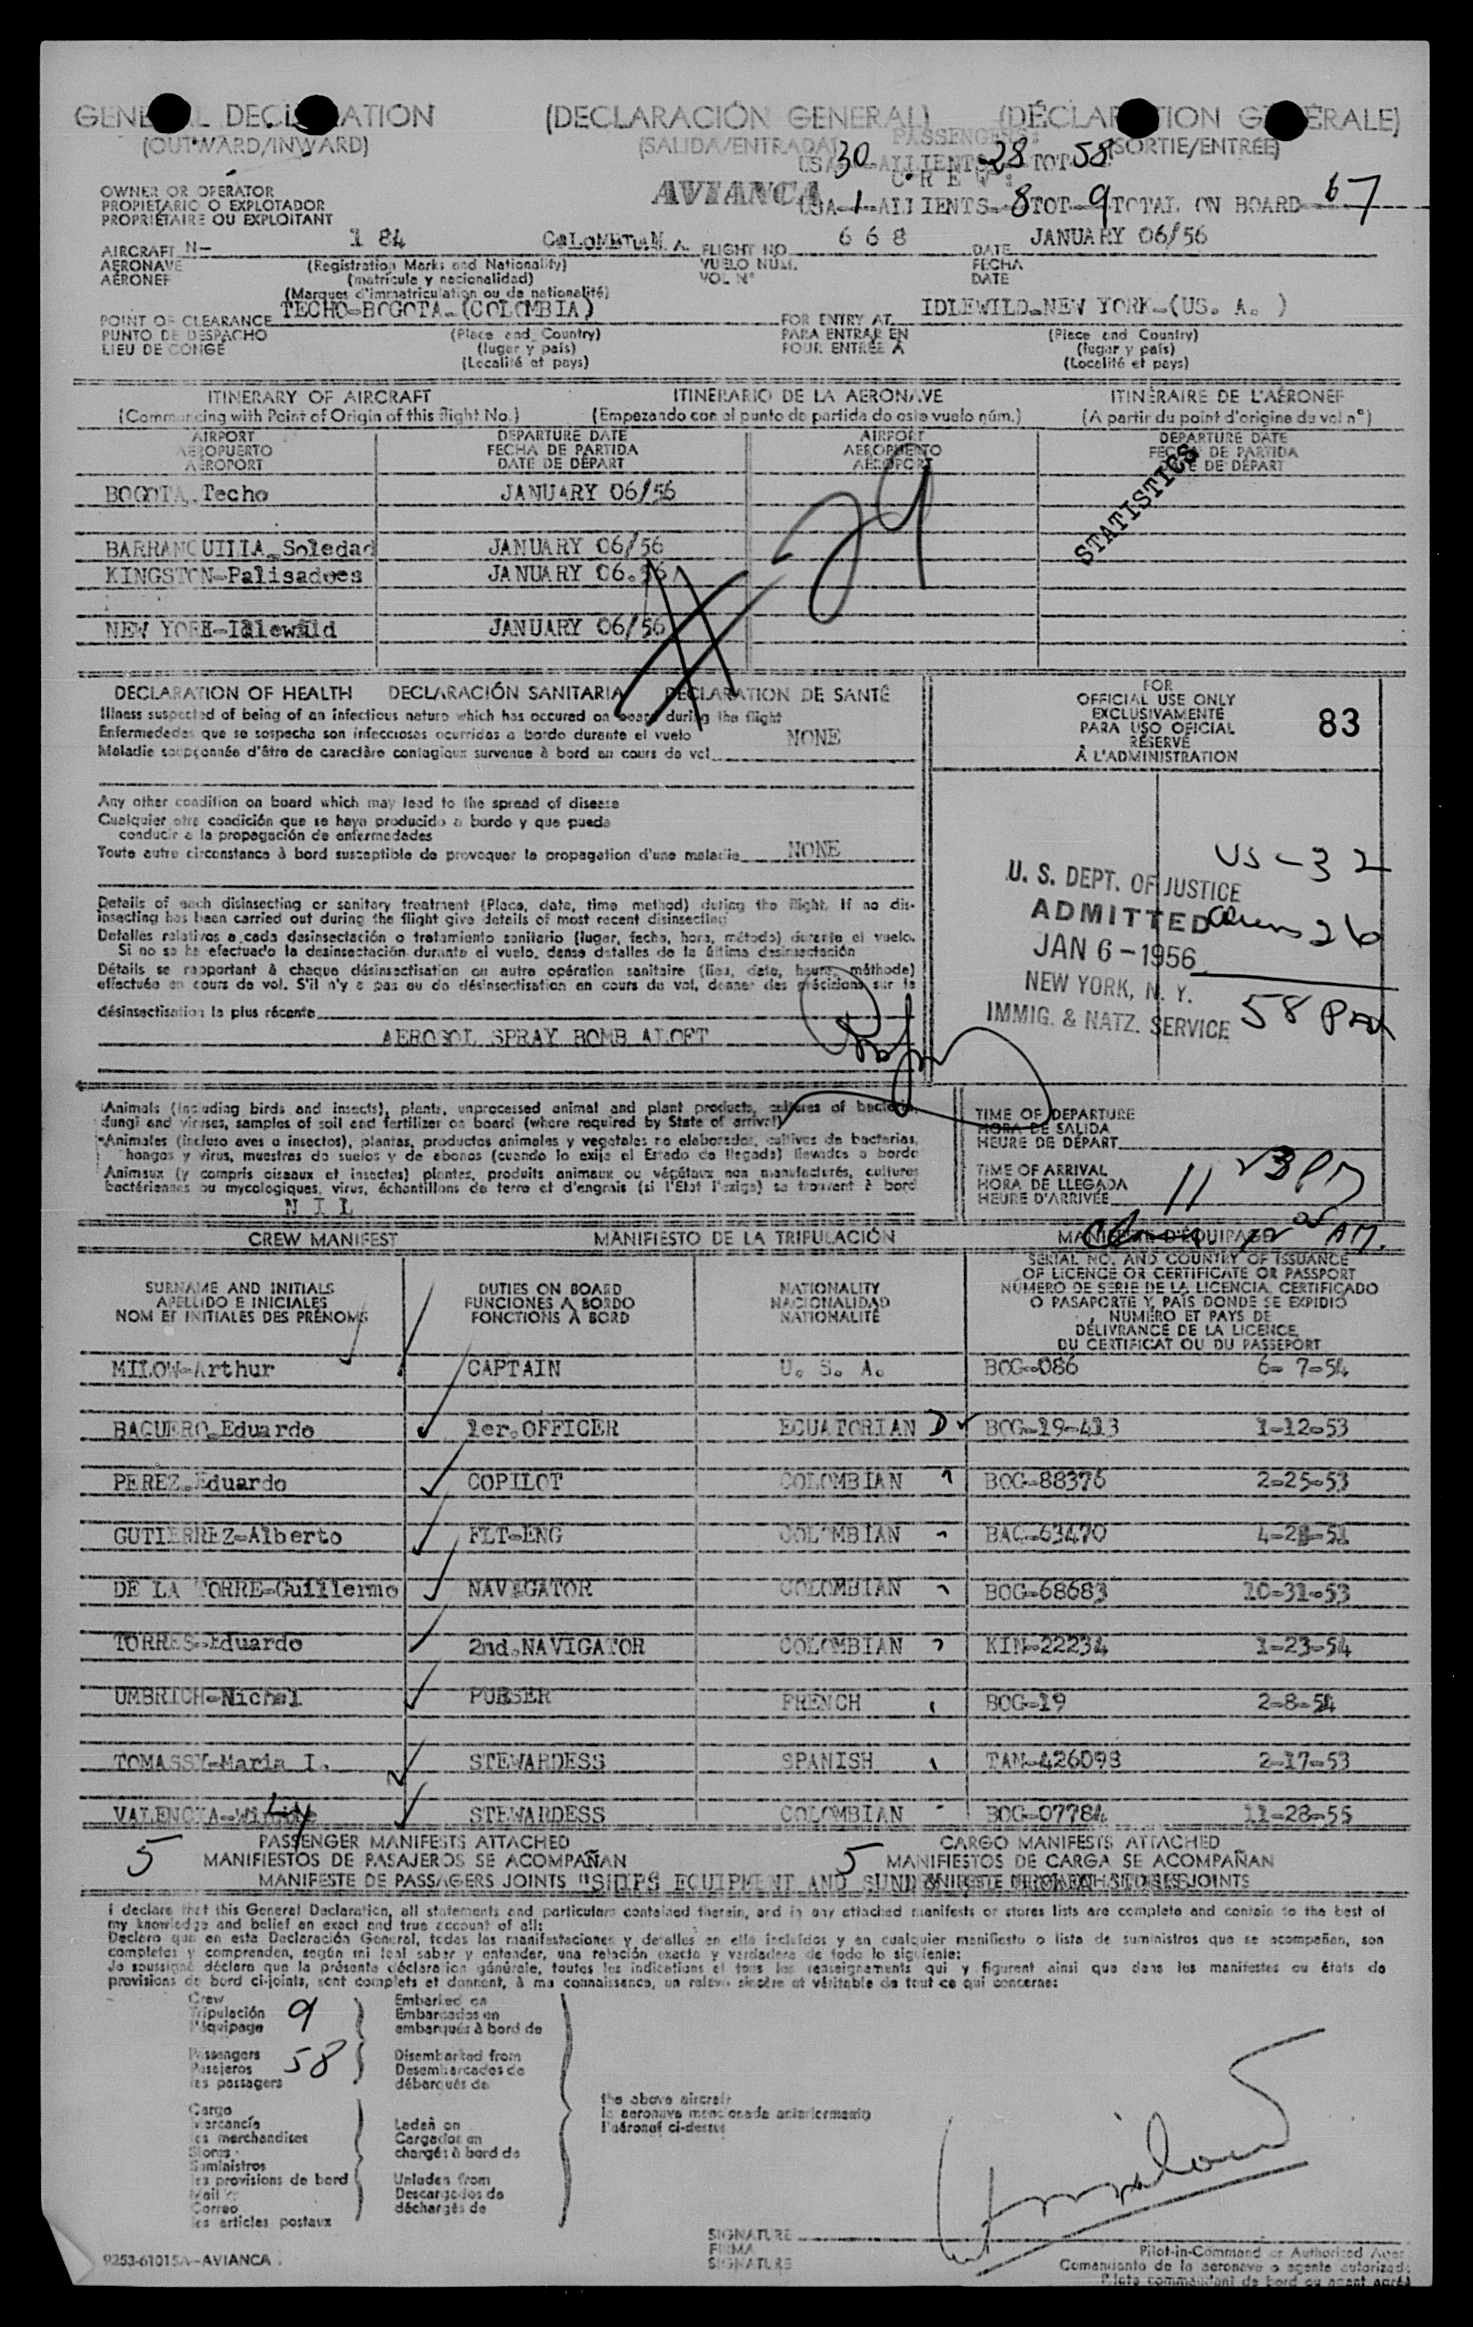 GENERAL DECLARATION (DECLARACIÓN GENERAL) (DÉCLARATION GÉNÉRALE)
(OUTWARD/INWARD) (SALIDA/ENTRADA) (SORTIE/ENTRÉE)
PASSENGERS:
USA 30 ALLIENTS 28 TOT 58
CREW:
OWNER OR OPERATOR
PROPIETARIO O EXPLOTADOR
PROPRIÉTAIRE OU EXPLOITANT
AVIANCA
USA-1-ALLIENTS-8 TOT-9 TOTAL ON BOARD 67
AIRCRAFT N- 1 84 COLOMBIAN. FLIGHT NO. 6 6 8 DATE JANUARY 06/56
AERONAVE (Registration Marks and Nationality) VUELO NUM. FECHA
AÉRONEF (matrícula y nacionalidad) VOL N° DATE
(Marques d'immatriculation ou de nationalité)
POINT OF CLEARANCE TECHO-BOGOTA-(COLOMBIA) FOR ENTRY AT IDLEWILD-NEW YORK-(US. A. )
PUNTO DE DESPACHO (Place and Country) PARA ENTRAR EN (Place and Country)
LIEU DE CONGÉ (lugar y país) POUR ENTRÉE À (lugar y país)
(Localité et pays) (Localité et pays)
ITINERARY OF AIRCRAFT ITINERARIO DE LA AERONAVE ITINÉRAIRE DE L'AÉRONEF
(Commencing with Point of Origin of this flight No.) (Empezando con el punto de partida de este vuelo núm.) (A partir du point d'origine du vol n°)
AIRPORT DEPARTURE DATE AIRPORT DEPARTURE DATE
AEROPUERTO FECHA DE PARTIDA AEROPUERTO FECHA DE PARTIDA
AÉROPORT DATE DE DÉPART AÉROPORT DATE DE DÉPART
BOGOTA, Techo JANUARY 06/56
STATISTICS
BARRANQUILLA-Soledad JANUARY 06/56
KINGSTON-Palisadoes JANUARY 06.56
NEW YORK-Idlewild JANUARY 06/56
DECLARATION OF HEALTH DECLARACIÓN SANITARIA DÉCLARATION DE SANTÉ
Illness suspected of being of an infectious nature which has occured on board during the flight
Enfermedades que se sospecha son infecciosas ocurridas a bordo durante el vuelo NONE
Maladie soupçonnée d'être de caractère contagieux survenue à bord au cours de vol
FOR
OFFICIAL USE ONLY
EXCLUSIVAMENTE
PARA USO OFICIAL
RÉSERVÉ
À L'ADMINISTRATION
83
Any other condition on board which may lead to the spread of disease
Cualquier otra condición que se haya producido a bordo y que pueda
conducir a la propagación de enfermedades
Toute autre circonstance à bord susceptible de provoquer la propagation d'une maladie NONE
US - 32
U. S. DEPT. OF JUSTICE
ADMITTED
Aliens 26
JAN 6 - 1956
NEW YORK, N. Y.
IMMIG. & NATZ. SERVICE
58 Pax
Details of each disinsecting or sanitary treatment (Place, date, time method) during the flight. If no dis-
insecting has been carried out during the flight give details of most recent disinsecting
Detalles relativos a cada desinsectación o tratamiento sanitario (lugar, fecha, hora, método) durante el vuelo.
Si no se ha efectuado la desinsectación durante el vuelo, dense detalles de la última desinsectación
Détails se rapportant à chaque désinsectisation ou autre opération sanitaire (lieu, date, heure, méthode)
effectuée en cours de vol. S'il n'y a pas eu de désinsectisation en cours de vol, donner des précisions sur la
désinsectisation la plus récente
AEROSOL SPRAY BOMB ALOFT
Animals (including birds and insects), plants, unprocessed animal and plant products, cultures of bacteria,
fungi and viruses, samples of soil and fertilizer on board (where required by State of arrival)
Animales (incluso aves o insectos), plantas, productos animales y vegetales no elaborados, cultivos de bacterias,
hongos y virus, muestras de suelos y de abonos (cuando lo exija el Estado de llegada) llevados a bordo
Animaux (y compris oiseaux et insectes) plantes, produits animaux ou végétaux non manufacturés, cultures
bactériennes ou mycologiques, virus, échantillons de terre et d'engrais (si l'Etat l'exige) se trouvant à bord
N I L
TIME OF DEPARTURE
HORA DE SALIDA
HEURE DE DÉPART
TIME OF ARRIVAL
HORA DE LLEGADA
HEURE D'ARRIVÉE
11 23 PM
AM.
CREW MANIFEST MANIFIESTO DE LA TRIPULACIÓN MANIFESTE D'ÉQUIPAGE
SURNAME AND INITIALS DUTIES ON BOARD NATIONALITY SERIAL NO. AND COUNTRY OF ISSUANCE
APELLIDO E INICIALES FUNCIONES A BORDO NACIONALIDAD OF LICENCE OR CERTIFICATE OR PASSPORT
NOM ET INITIALES DES PRÉNOMS FONCTIONS À BORD NATIONALITÉ NÚMERO DE SERIE DE LA LICENCIA, CERTIFICADO
O PASAPORTE Y PAÍS DONDE SE EXPIDIÓ
NUMÉRO ET PAYS DE
DÉLIVRANCE DE LA LICENCE,
DU CERTIFICAT OU DU PASSEPORT
MILOW-Arthur CAPTAIN U. S. A. BOG-086 6- 7-54
BAQUERO-Eduardo 1er.OFFICER ECUATORIAN D BOG-19-413 1-12-53
PEREZ-Eduardo COPILOT COLOMBIAN BOG-88376 2-25-53
GUTIERREZ-Alberto FLT-ENG COLOMBIAN BAQ-63470
DE LA TORRE-Guillermo NAVIGATOR COLOMBIAN BOG-68683 10-31-53
TORRES-Eduardo 2nd.NAVIGATOR COLOMBIAN KIN-22234 1-23-54
UMBRICH-Nichel PURSER FRENCH BOG-19 2-8-54
TOMASSY-Maria I. STEWARDESS SPANISH TAN-426098 2-17-53
VALENCIA- Ly STEWARDESS COLOMBIAN BOG-07784 11-28-55
5 PASSENGER MANIFESTS ATTACHED 5 CARGO MANIFESTS ATTACHED
MANIFIESTOS DE PASAJEROS SE ACOMPAÑAN MANIFIESTOS DE CARGA SE ACOMPAÑAN
MANIFESTE DE PASSAGERS JOINTS "SHIPS EQUIPMENT AND JOINTS
I declare that this General Declaration, all statements and particulars contained therein, and in any attached manifests or stores lists are complete and contain to the best of
my knowledge and belief an exact and true account of all:
Declaro que en esta Declaración General, todas las manifestaciones y detalles en ella incluidos y en cualquier manifiesto o lista de suministros que se acompañan, son
completos y comprenden, según mi leal saber y entender, una relación exacta y verdadera de todo lo siguiente:
Je soussigné déclare que la présente déclaration générale, toutes les indications et tous les renseignements qui y figurent ainsi que dans les manifestes ou états de
provisions de bord ci-joints, sont complets et donnent, à ma connaissance, un relevé sincère et véritable de tout ce qui concerne:
Crew Embarked on
Tripulación 9 Embarcados en
l'équipage embarqués à bord de
Passengers Disembarked from
Pasajeros 58 Desembarcados de
les passagers débarqués de
Cargo the above aircraft
Mercancía Laden on la aeronave mencionada anteriormente
les marchandises Cargados en l'aéronef ci-dessus
Stores chargés à bord de
Suministros
les provisions de bord Unladen from
Mail Descargados de
Correo déchargés de
les articles postaux
SIGNATURE
FIRMA
SIGNATURE
Pilot-in-Command or Authorized Agent
Comandante de la aeronave o agente autorizado
Pilote commandant de bord ou agent agréé
9253-61015A-AVIANCA